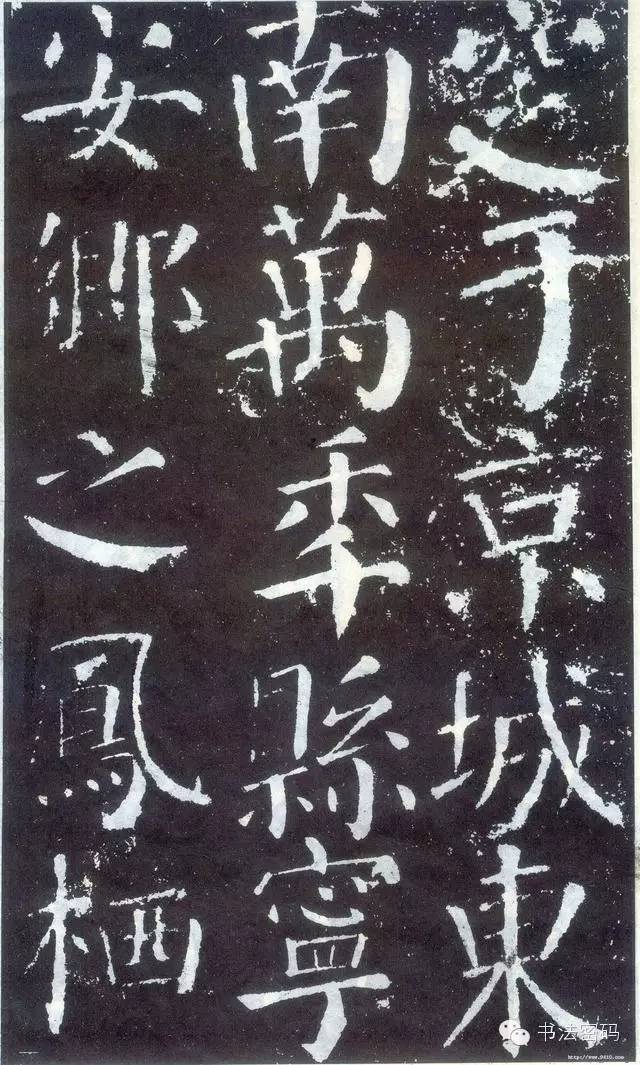 于京城東
南萬秊縣寧
安鄉之鳳栖
书法密码
http://www.9610.com